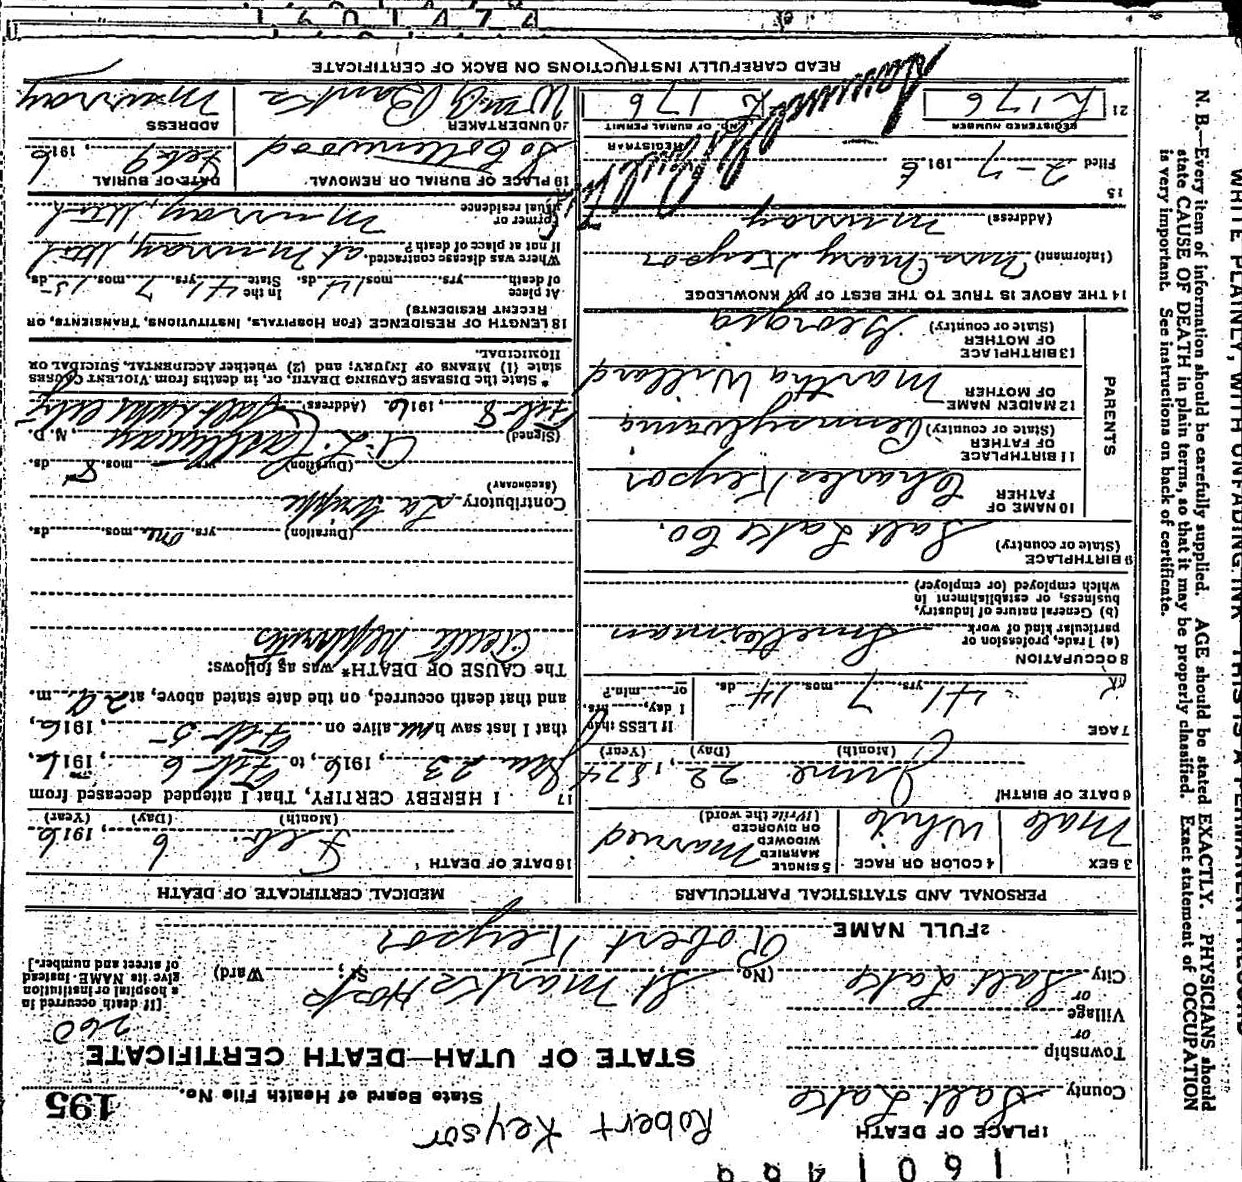 1 PLACE OF DEATH
Robert Keysor
State Board of Health File No. 195
County Salt Lake
STATE OF UTAH—DEATH CERTIFICATE
Township
or
Village
or
City Salt Lake (No. St Marks Hosp St; Ward)
260
[If death occurred in
a hospital or institution
give its NAME instead
of street and number.]
2 FULL NAME Robert Keysor
PERSONAL AND STATISTICAL PARTICULARS
3 SEX Male
4 COLOR OR RACE White
5 SINGLE
MARRIED
WIDOWED
OR DIVORCED
(Write the word) Married
6 DATE OF BIRTH June 22, 1874
(Month) (Day) (Year)
7 AGE 41 yrs. 7 mos. 14 ds.
If LESS than
1 day, hrs.
or min.?
8 OCCUPATION
(a) Trade, profession or
particular kind of work Smelterman
(b) General nature of Industry,
business, or establishment in
which employed (or employer)
9 BIRTHPLACE
(State or country) Salt Lake Co.
PARENTS
10 NAME OF
FATHER Charles Keysor
11 BIRTHPLACE
OF FATHER
(State or country) Pennsylvania
12 MAIDEN NAME
OF MOTHER Martha Willard
13 BIRTHPLACE
OF MOTHER
(State or country) Georgia
14 THE ABOVE IS TRUE TO THE BEST OF MY KNOWLEDGE
(Informant) Mrs Mary Keysor
(Address) Murray
15
Filed 2-7 1916
REGISTRAR
21 REGISTERED NUMBER K 176
NO. OF BURIAL PERMIT K 176
MEDICAL CERTIFICATE OF DEATH
16 DATE OF DEATH
Feb. 6, 1916
(Month) (Day) (Year)
17 I HEREBY CERTIFY, That I attended deceased from
Jan 23, 1916, to Feb 6, 1916,
that I last saw him alive on Feb 5, 1916,
and that death occurred, on the date stated above, at 2 a m.
The CAUSE OF DEATH* was as follows:
Acute Nephritis
(Duration) yrs. one mos. ds.
Contributory La Grippe
(SECONDARY)
(Duration) yrs. mos. 8 ds.
(Signed) M. D.
Feb 8, 1916 (Address) Salt Lake City
* State the DISEASE CAUSING DEATH, or, in deaths from VIOLENT CAUSES
state (1) MEANS OF INJURY; and (2) whether ACCIDENTAL, SUICIDAL OR
HOMICIDAL.
18 LENGTH OF RESIDENCE (FOR HOSPITALS, INSTITUTIONS, TRANSIENTS, OR
RECENT RESIDENTS)
At place
of death yrs. mos. 14 ds. In the State 41 yrs. 7 mos. 15 ds.
Where was disease contracted,
If not at place of death? at Murray, Utah
Former or
usual residence Murray, Utah
19 PLACE OF BURIAL OR REMOVAL So Cottonwood
DATE OF BURIAL Feb 9, 1916
20 UNDERTAKER
ADDRESS Murray
READ CAREFULLY INSTRUCTIONS ON BACK OF CERTIFICATE
WRITE PLAINLY, WITH UNFADING INK—THIS IS A PERMANENT RECORD
N. B.—Every item of information should be carefully supplied. AGE should be stated EXACTLY. PHYSICIANS should
state CAUSE OF DEATH in plain terms, so that it may be properly classified. Exact statement of OCCUPATION
is very important. See instructions on back of certificate.